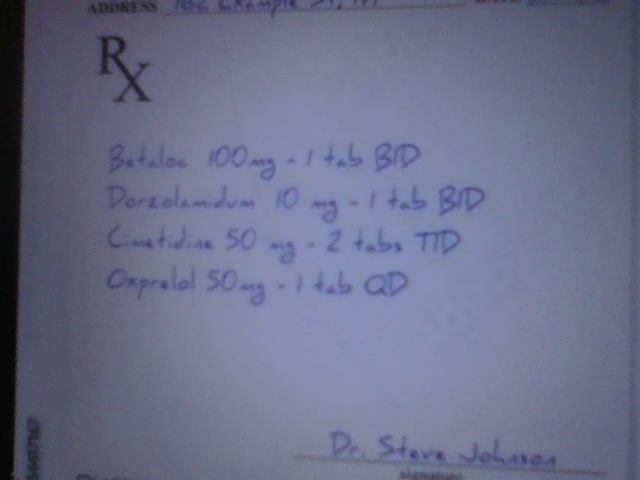 ADDRESS 162 Example St, NY
Rx
Betaloc 100mg - 1 tab BID
Dorzolamidum 10 mg - 1 tab BID
Cimetidine 50 mg - 2 tabs TID
Oxprelol 50mg - 1 tab QD
Dr. Steve Johnson
signature